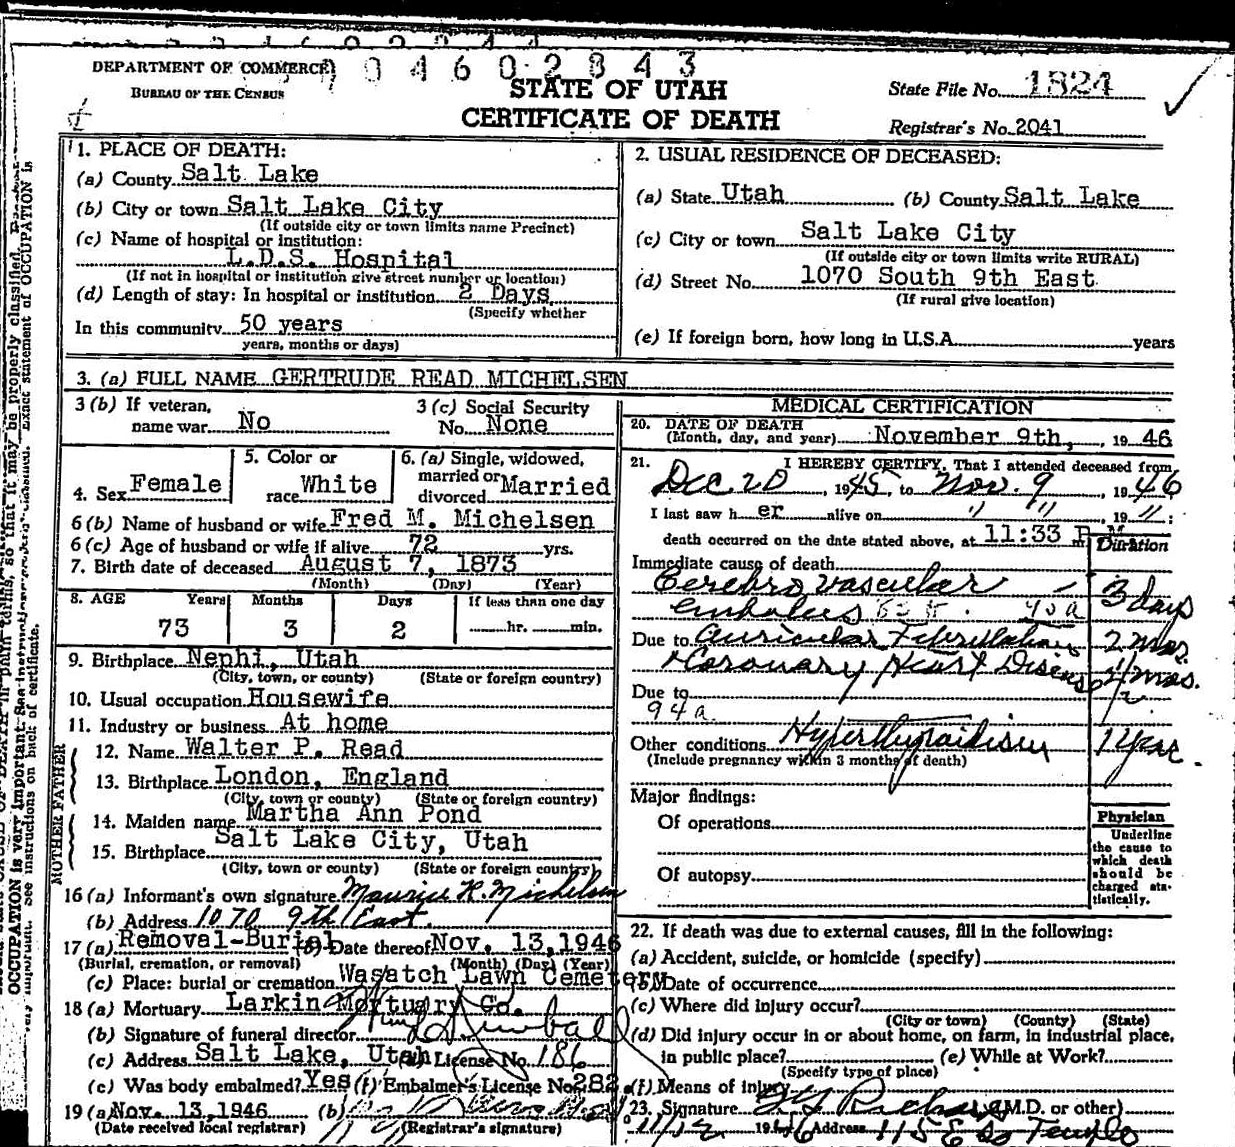 DEPARTMENT OF COMMERCE
BUREAU OF THE CENSUS
0 4 6 0 2 8 4 3
STATE OF UTAH
CERTIFICATE OF DEATH
State File No. 1824
Registrar's No. 2041
1. PLACE OF DEATH:
(a) County Salt Lake
(b) City or town Salt Lake City
(If outside city or town limits name Precinct)
(c) Name of hospital or institution:
L.D.S. Hospital
(If not in hospital or institution give street number or location)
(d) Length of stay: In hospital or institution 2 Days
(Specify whether
In this community 50 years
years, months or days)
2. USUAL RESIDENCE OF DECEASED:
(a) State Utah (b) County Salt Lake
(c) City or town Salt Lake City
(If outside city or town limits write RURAL)
(d) Street No. 1070 South 9th East
(If rural give location)
(e) If foreign born, how long in U.S.A. years
3. (a) FULL NAME GERTRUDE READ MICHELSEN
3 (b) If veteran, name war No
3 (c) Social Security No. None
4. Sex Female
5. Color or race White
6. (a) Single, widowed, married or divorced Married
6 (b) Name of husband or wife Fred M. Michelsen
6 (c) Age of husband or wife if alive 72 yrs.
7. Birth date of deceased August 7, 1873
(Month) (Day) (Year)
8. AGE Years Months Days If less than one day
73 3 2 hr. min.
9. Birthplace Nephi, Utah
(City, town, or county) (State or foreign country)
10. Usual occupation Housewife
11. Industry or business At home
FATHER
12. Name Walter P. Read
13. Birthplace London, England
(City, town or county) (State or foreign country)
MOTHER
14. Maiden name Martha Ann Pond
15. Birthplace Salt Lake City, Utah
(City, town or county) (State or foreign country)
16 (a) Informant's own signature Maurice R. Michelsen
(b) Address 1070 9th East.
17 (a) Removal-Burial (b) Date thereof Nov. 13,1946
(Burial, cremation, or removal) (Month) (Day) (Year)
(c) Place: burial or cremation Wasatch Lawn Cemetery
18 (a) Mortuary Larkin Mortuary Co.
(b) Signature of funeral director
(c) Address Salt Lake, Utah (d) License No. 186
(e) Was body embalmed? Yes (f) Embalmer's License No. 282
19 (a) Nov. 13,1946 (b)
(Date received local registrar) (Registrar's signature)
MEDICAL CERTIFICATION
20. DATE OF DEATH
(Month, day, and year) November 9th, , 1946
21. I HEREBY CERTIFY, That I attended deceased from
Dec 20, 1945, to Nov. 9, 1946
I last saw her alive on " "", 19 ";
death occurred on the date stated above, at 11:33 P. M.
Duration
Immediate cause of death
Cerebro vascular - 3 days
embolus
Due to Auricular Fibrillation 2 mos.
& Coronary Heart Disease
Due to
94a
Other conditions Hyperthyroidism 1 year.
(Include pregnancy within 3 months of death)
Major findings:
Of operations
Of autopsy
Physician
Underline
the cause to
which death
should be
charged sta-
tistically.
22. If death was due to external causes, fill in the following:
(a) Accident, suicide, or homicide (specify)
(b) Date of occurrence
(c) Where did injury occur?
(City or town) (County) (State)
(d) Did injury occur in or about home, on farm, in industrial place,
in public place? (e) While at Work?
(Specify type of place)
(f) Means of injury
23. Signature (M.D. or other)
11/12 1946 Address 115 E So Temple
OCCUPATION is very important. See instructions on back of certificate.